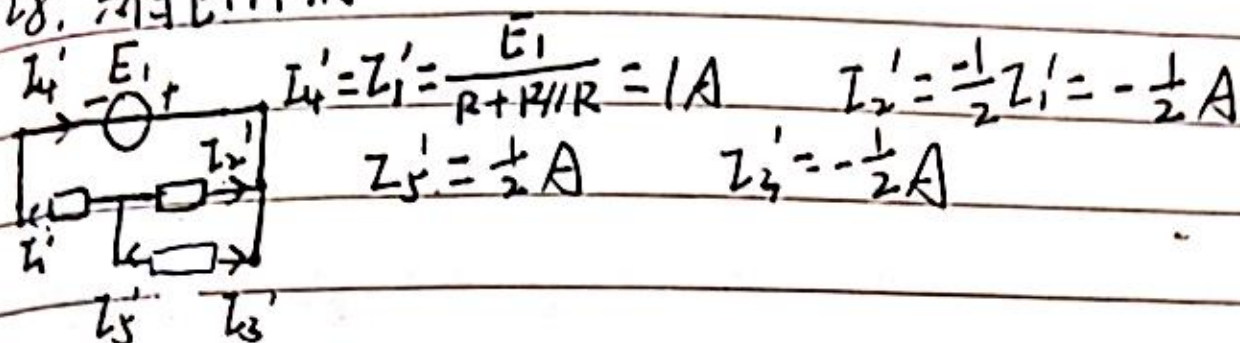 28.
I₄' - E₁ + I₄'=I₁'=E₁/(R+R//R)=1A I₂'=-1/2 I₁'=-1/2 A
I₂' I₅'=1/2 A I₃'=-1/2 A
I₁'
I₅' I₃'